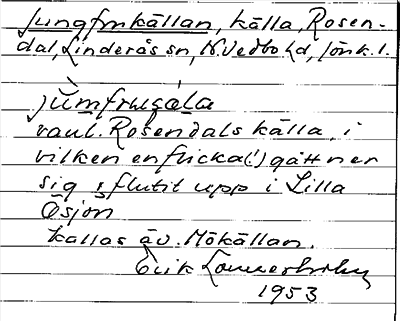 Jungfrukällan, källa, Rosen-
dal, Linderås sn, N. Vedbo hd, Jönk. l.
jùmfrugála
vanl. Rosendals källa, i
vilken en flicka (!) gått ner
sig o. flutit upp i Lilla
Ösjön
Kallas äv. Mökällan.
Erik
1953